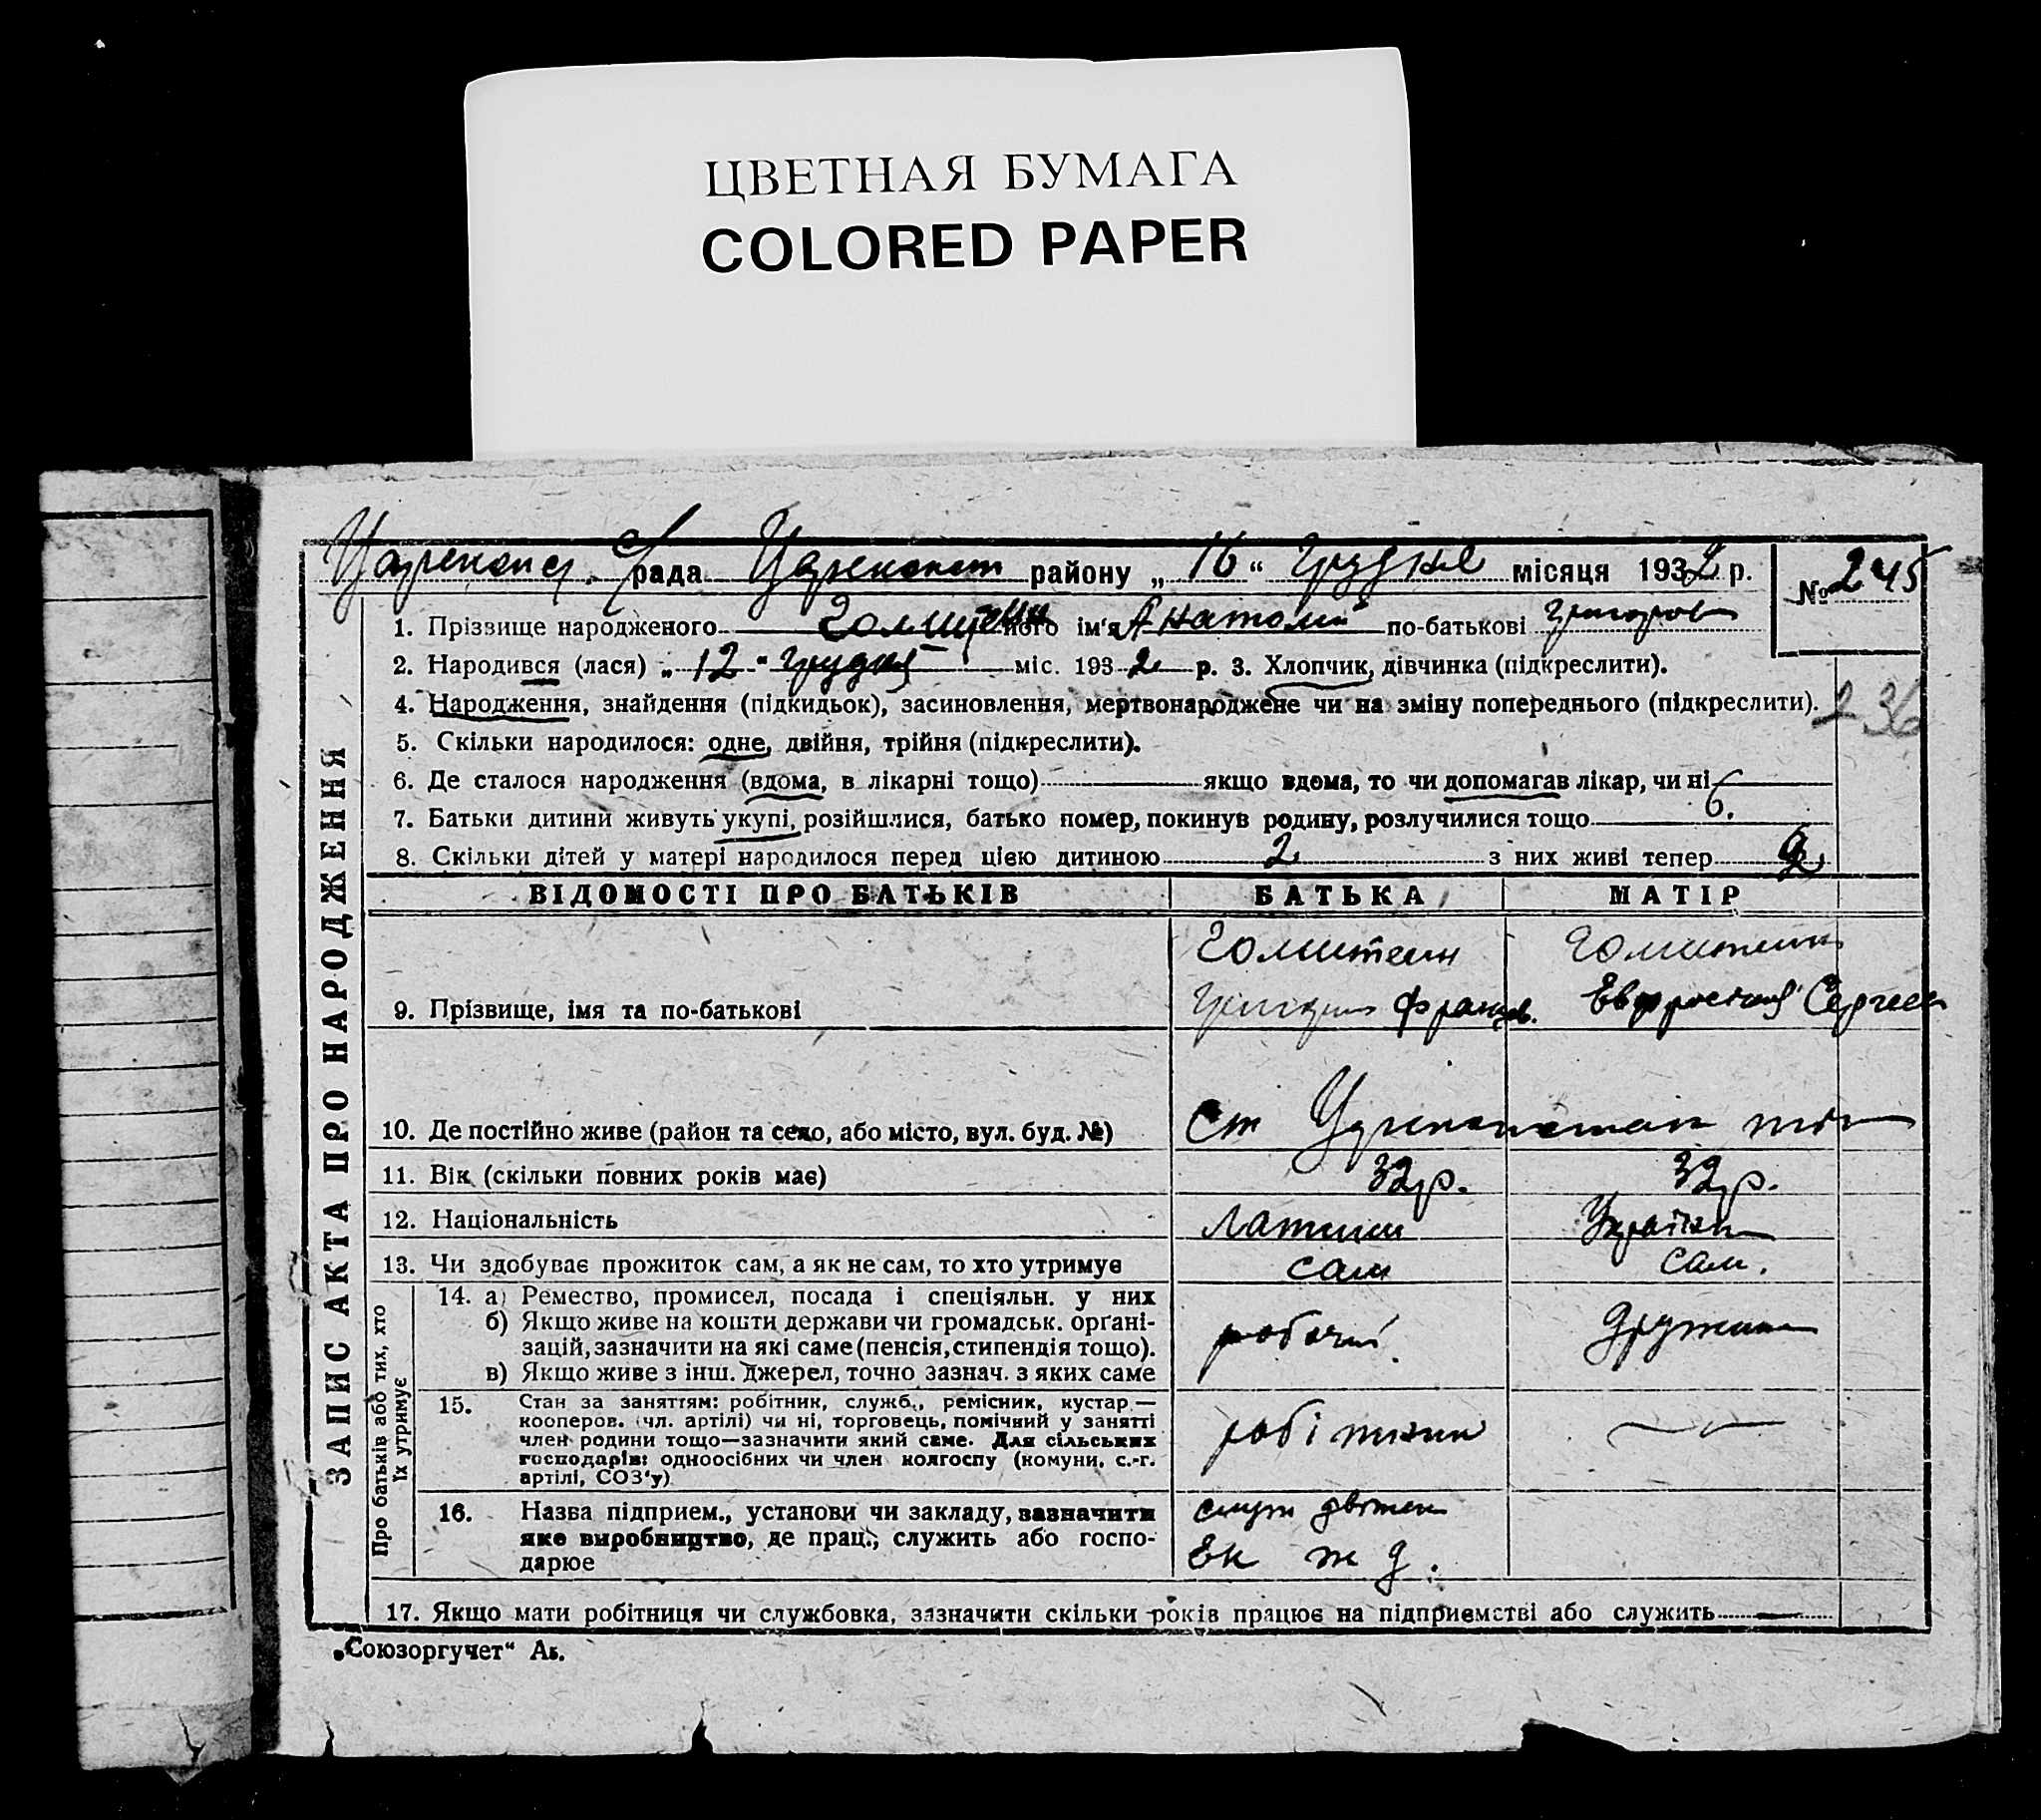 ЦВЕТНАЯ БУМАГА
COLORED PAPER
рада району „ 16 “ Грудня місяця 1932 р.
№ 245
1. Прізвище народженого Голштейн його ім'я Анатолий по-батькові Григоров
2. Народився (лася) „ 12 " грудня міс. 193 2 р. 3. Хлопчик, дівчинка (підкреслити).
4. Народження, знайдення (підкидьок), засиновлення, мертвонароджене чи на зміну попереднього (підкреслити).
236
5. Скільки народилося: одне, двійня, трійня (підкреслити).
6. Де сталося народження (вдома, в лікарні тощо) якщо вдома, то чи допомагав лікар, чи ні
7. Батьки дитини живуть укупі, розійшлися, батько помер, покинув родину, розлучилися тощо
8. Скільки дітей у матері народилося перед цією дитиною 2 з них живі тепер 2
ЗАПИС АКТА ПРО НАРОДЖЕННЯ
ВІДОМОСТІ ПРО БАТЬКІВ БАТЬКА МАТІР
Голштейн Голштейн
9. Прізвище, імя та по-батькові Григорий Францов. Евфросиния Сергеев
10. Де постійно живе (район та село, або місто, вул. буд. №) ст
11. Вік (скільки повних років має) 32 р. 32 р.
12. Національність Латиш Українк
13. Чи здобуває прожиток сам, а як не сам, то хто утримує сам сам.
Про батьків або тих, хто їх утримує
14. а) Ремество, промисел, посада і спеціяльн. у них
б) Якщо живе на кошти держави чи громадськ. орґані-
зацій, зазначити на які саме (пенсія, стипендія тощо). робочий. Дружина
в) Якщо живе з інш. джерел, точно зазнач. з яких саме
15. Стан за заняттям: робітник, служб., ремісник, кустар —
кооперов. (чл. артілі) чи ні, торговець, помічний у занятті
член родини тощо—зазначити який саме. Для сільських робітник
господарів: одноосібних чи член колгоспу (комуни, с.-г.
артілі, СОЗ'у)
16. Назва підприєм., установи чи закладу, зазначити
яке виробництво, де прац., служить або госпо-
дарює Ек ж д.
17. Якщо мати робітниця чи службовка, зазначити скільки років працює на підприємстві або служить
„Союзоргучет“